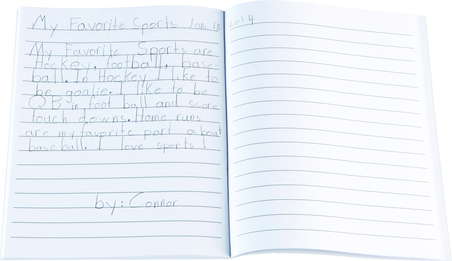 My Favorite Sports Jan. 13 2014
My Favorite Sports are
Hockey, football, base-
ball. In Hockey I like to
be goalie. I like to be
QB in foot ball and score
touch downs. Home runs
are my favorite part about
baseball. I love sports!
by: Connor